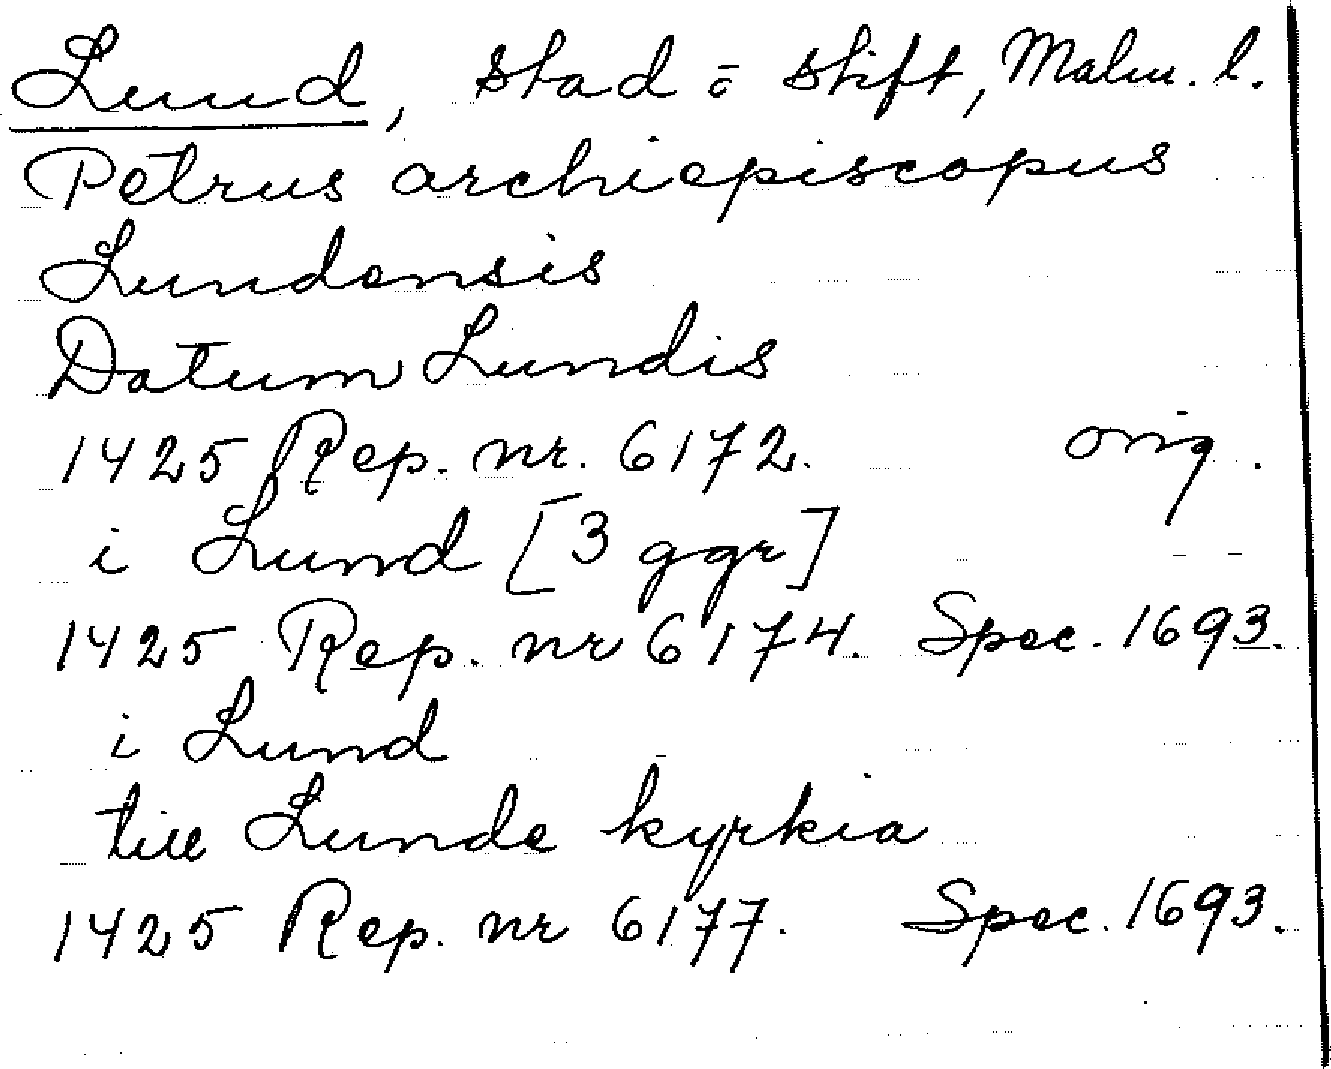 Lund, stad o stift, Malm. l.
Petrus archiepiscopus
Lundensis
Datum Lundis
1425 Rep. nr. 6172. orig.
i Lund [3 ggr]
1425 Rep. nr 6174. Spec. 1693.
i Lund
till Lunde kyrkia
1425 Rep. nr 6177. Spec. 1693.